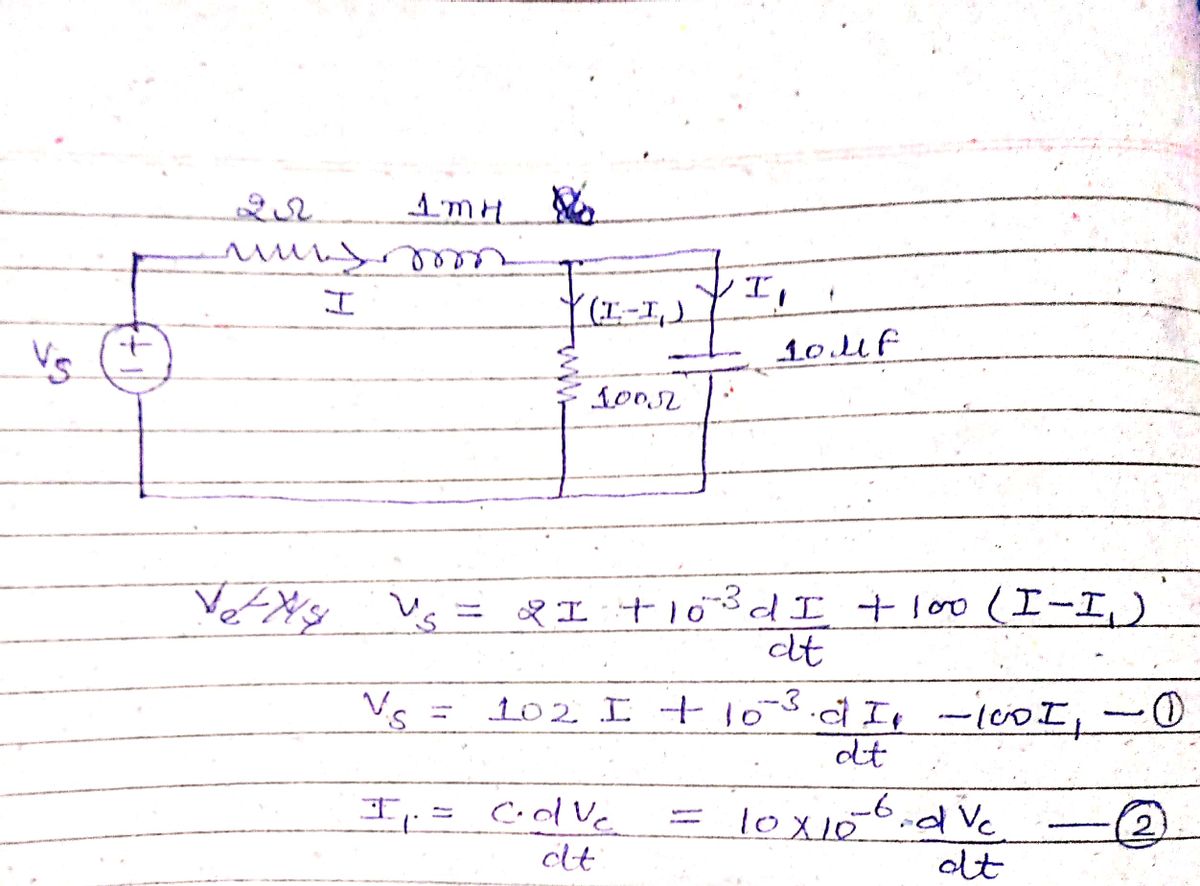 2Ω 1mH
I
(I-I₁) I₁
Vs + -
10μF
100Ω
Vs = 2I + 10⁻³ dI/dt + 100 (I-I₁)
Vs = 102 I + 10⁻³ · dI₁/dt - 100I₁ — ①
I₁ = C·dVc/dt = 10×10⁻⁶ · dVc/dt — ②